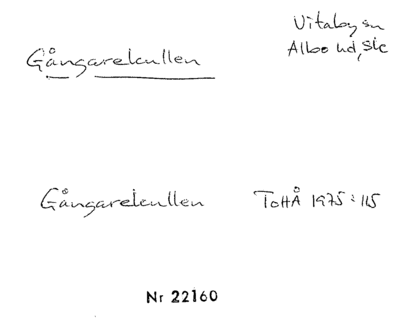 Vitaby sn
Albo hd, Sk
Gångarekullen
Gångarekullen ToHÅ 1975:115
Nr 22160